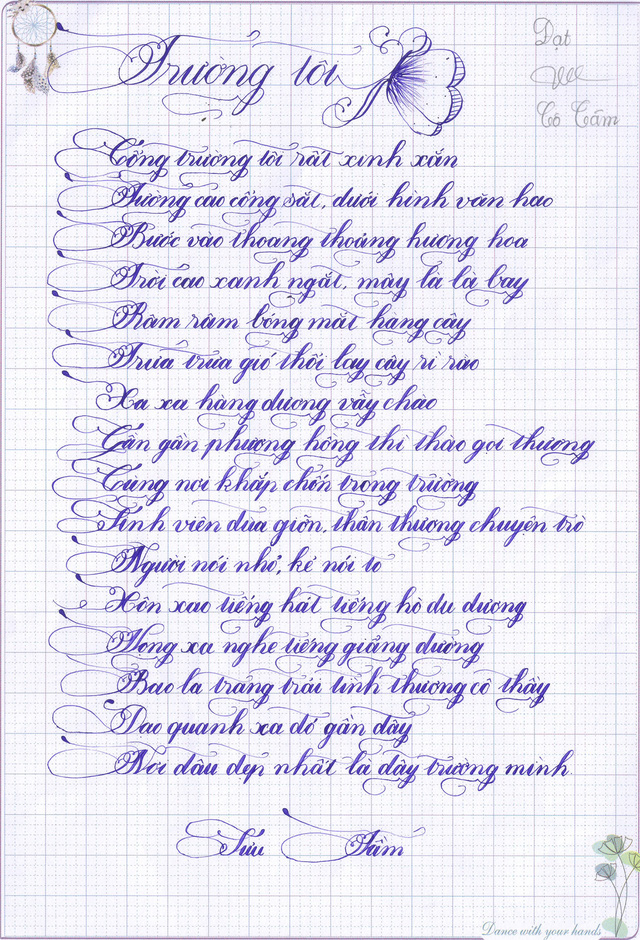 Đạt
Cô Cấm
Trường tôi
Cổng trường tôi rất xinh xắn
Tường cao cổng sắt, dưới hình văn hao
Bước vào thoang thoảng hương hoa
Trời cao xanh ngắt, mây là la bay
Râm râm bóng mát hàng cây
Trưa trưa gió thổi lay cây rì rào
Xa xa hàng dương vẫy chào
Gần gần phượng hồng thì thào gọi thương
Cùng nơi khắp chốn trong trường
Sinh viên đùa giỡn, thân thương chuyện trò
Người nói nhỏ, kẻ nói to
Xôn xao tiếng hát tiếng hò du dương
Vọng xa nghe tiếng giảng đường
Bao la trang trải tình thương cô thầy
Dạo quanh xa đó gần đây
Nơi đâu đẹp nhất là đây trường mình
Sưu Tầm
Dance with your hands